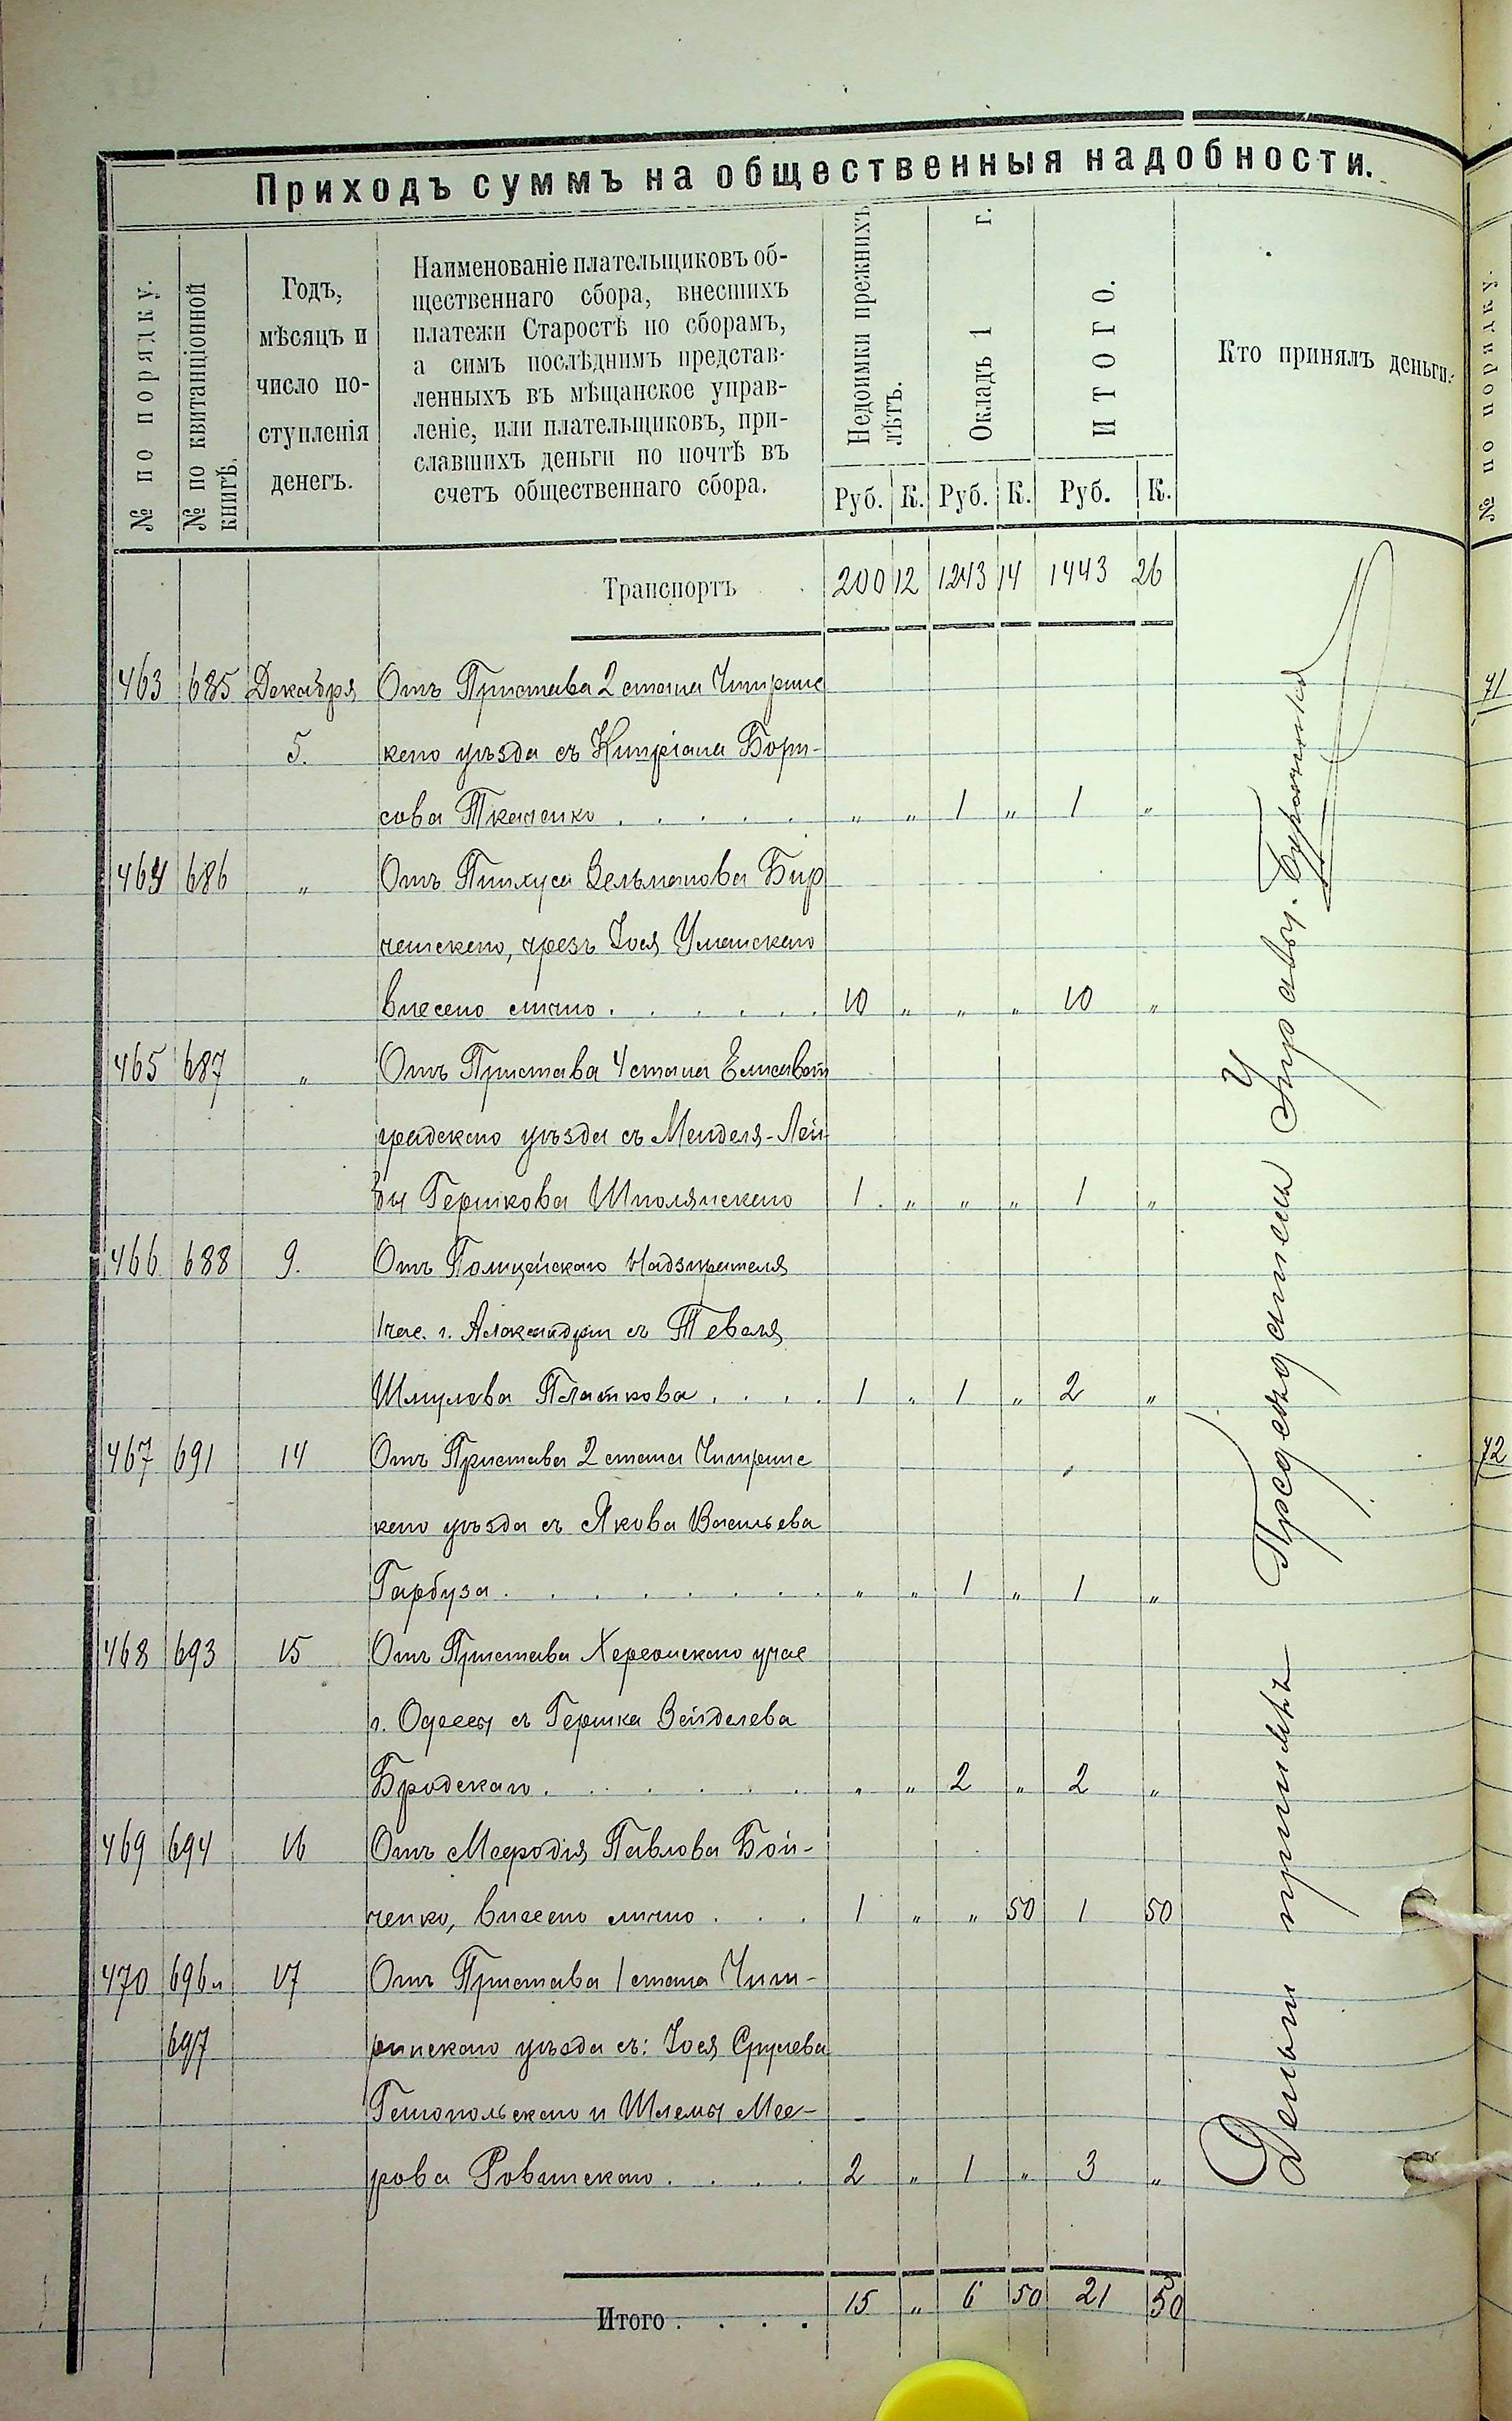 Приходъ суммъ на общественныя надобности.
№ по порядку.
№ по квитанціонной
книгѣ.
Годъ,
мѣсяцъ и
число по-
ступленія
денегъ.
Наименованіе плательщиковъ об-
щественнаго сбора, внесшихъ
платежи Старостѣ по сборамъ,
а симъ послѣднимъ представ-
ленныхъ въ мѣщанское управ-
леніе, или плательщиковъ, при-
славшихъ деньги по почтѣ въ
счетъ общественнаго сбора.
Недоимки прежнихъ
лѣтъ.
Окладъ 1 г.
ИТОГО.
Кто принялъ деньги.
Руб. К. Руб. К. Руб. К.
№ по порядку.
Транспортъ 200 12 1243 14 1443 26
463 685 Декабря Отъ Пристава 2 стана Чигринс
5. каго уѣзда съ Кипріана Бори-
сова Ткаченко . . . . . „ „ 1 „ 1 „
464 686 „ Отъ Пинхуса Зельманова Бир
ченскаго, чрезъ Іося Уманскаго
внесено лично . . . . . . 10 „ „ „ 10 „
465 687 „ Отъ Пристава 4 стана Елисавет
градскаго уѣзда съ Менделя-Лей
бы Гершкова Шполянскаго 1 . „ „ „ 1 „
466 688 9. Отъ Полицейскаго Надзирателя
1 час. г. Александріи съ Тевеля
Шмулова Пляткова . . . . 1 „ 1 „ 2 „
467 691 14 Отъ Пристава 2 стана Чигринс
каго уѣзда съ Якова Васильева
Гарбуза . . . . . . . . „ „ 1 „ 1 „
468 693 15 Отъ Пристава Херсонскаго учас
г. Одессы съ Гершка Зейделева
Бродскаго . . . . . . „ „ 2 „ 2 „
469 694 16 Отъ Мефодія Павлова Бой-
ченко, внесено лично . . . 1 „ „ 50 1 50
470 696 и 17 Отъ Пристава 1 стана Чиги-
697 ринскаго уѣзда съ: Іося Срулева
и Шлемы Мее-
рова . . . . 2 „ 1 „ 3 „
Итого . . . . 15 „ 6 50 21 50
Деньги принялъ Предсѣдатель Управы.
71
72